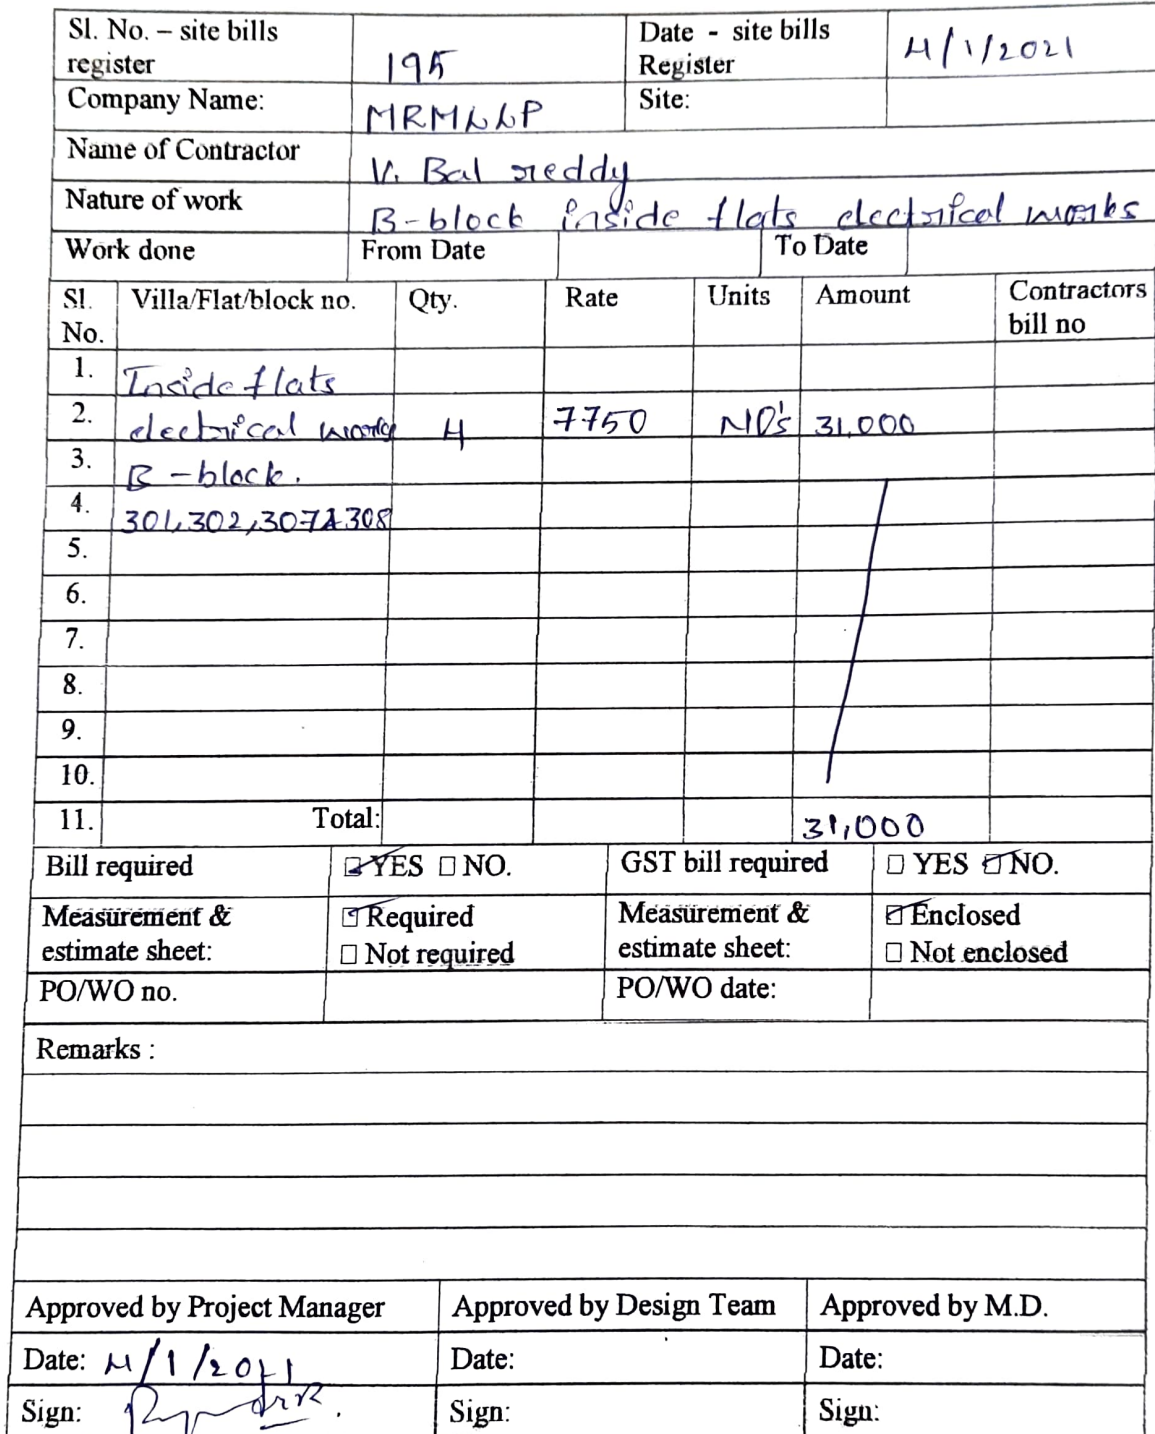 Sl. No. – site bills register 195 Date - site bills Register 4/1/2021
Company Name: MRMLLP Site:
Name of Contractor V. Bal reddy
Nature of work B-block inside flats electrical works
Work done From Date To Date
Sl. No. Villa/Flat/block no. Qty. Rate Units Amount Contractors bill no
1. Inside flats
2. electrical works 4 7750 NO's 31,000
3. B-block.
4. 301,302,307&308
5.
6.
7.
8.
9.
10.
11. Total: 31,000
Bill required ☑ YES ☐ NO. GST bill required ☐ YES ☑ NO.
Measurement & estimate sheet: ☑ Required ☐ Not required Measurement & estimate sheet: ☑ Enclosed ☐ Not enclosed
PO/WO no. PO/WO date:
Remarks :
Approved by Project Manager Approved by Design Team Approved by M.D.
Date: 4/1/2021 Date: Date:
Sign: Sign: Sign: